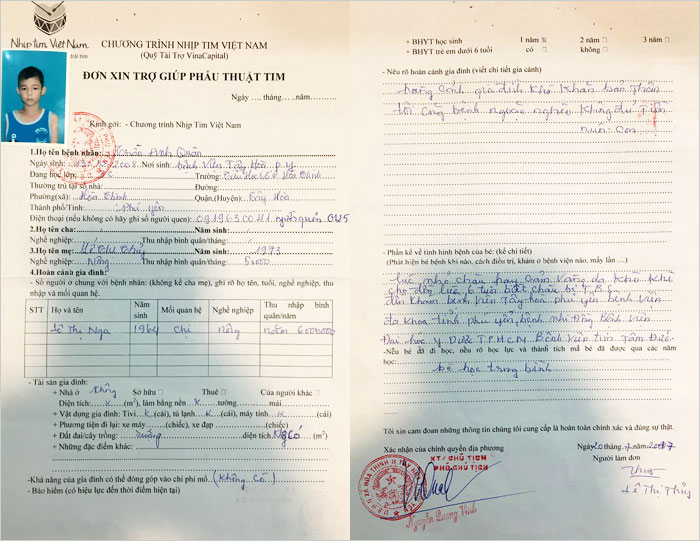 Nhịp tim Việt Nam
trái tim
CHƯƠNG TRÌNH NHỊP TIM VIỆT NAM
(Quỹ Tài Trợ VinaCapital)
ĐƠN XIN TRỢ GIÚP PHẪU THUẬT TIM
Ngày .... tháng.... ..năm...........
Kính gởi: - Chương trình Nhịp Tim Việt Nam
1.Họ tên bệnh nhân: Trần Anh Quân
Ngày sinh: 2008 Nơi sinh: bệnh viện Tây Hòa P.Y
Đang học lớp: Trường: Tiểu Học Hòa Thịnh
Thường trú tại số nhà: Đường:
Phường(xã): Hòa Thịnh Quận,(Huyện): Tây Hòa
Thành phố/Tỉnh: Phú yên
Điện thoại (nếu không có hãy ghi số người quen):
2.Họ tên cha: Năm sinh:
Nghề nghiệp: Thu nhập bình quân/tháng:
3.Họ tên mẹ: Lê Thị Thủy Năm sinh: 1973
Nghề nghiệp: Nông Thu nhập bình quân/tháng:
4.Hoàn cảnh gia đình:
- Số người ở chung với bệnh nhân: (không kể cha mẹ), ghi rõ họ tên, tuổi, nghề nghiệp, thu
nhập và mối quan hệ.
STT Họ và tên Năm sinh Mối quan hệ Nghề nghiệp Thu nhập bình quân/năm
Lê Thị Nga 1964 Chị nông năm 600.000
- Tài sản gia đình:
+ Nhà ở Không Sở hữu □ Thuê □ Của người khác □
Diện tích: K (m²), làm bằng nền K tường mái
+ Vật dụng gia đình: Tivi K (cái), tủ lạnh K (cái), máy tính K (cái)
+ Phương tiện đi lại: xe máy (chiếc), xe đạp (chiếc)
+ Đất đai/cây trồng: ruộng diện tích K có (m²)
+ Những đặc điểm khác:
-Khả năng của gia đình có thể đóng góp vào chi phí mổ. (không có)
- Bảo hiểm (có hiệu lực đến thời điểm hiện tại)
+ BHYT học sinh 1 năm 2 năm □ 3 năm □
+ BHYT trẻ em dưới 6 tuổi có □ không □
- Nêu rõ hoàn cảnh gia đình (viết chi tiết gia cảnh)
hoàng cảnh gia đình khó khăn bản thân
tôi cũng bệnh nguồn nghèo không đủ tiền
nuôi con
- Phần kể về tình hình bệnh của bé: (kể chi tiết)
(Phát hiện bị bệnh khi nào, cách điều trị, khám ở bệnh viện nào, mấy lần ...)
lúc nhỏ cháu hay cảm vàng da khò khè
cho đến lúc 6 tuổi biết cháu bị T.B.S
đến khám bệnh viện Tây hòa phú yên bệnh viện
đa khoa tỉnh phú yên, bệnh nhi Đồng Bệnh viện
Đại học y Dược T.P.H.C.M Bệnh viện tim Tâm Đức
-Nếu bé đã đi học, nêu rõ học lực và thành tích mà bé đã được qua các năm
học:
bé học trung bình
Tôi xin cam đoan những thông tin chúng tôi cung cấp là hoàn toàn chính xác và đúng sự thật.
Xác nhận của chính quyền địa phương Ngày 20 tháng 7 năm 2017
KT/ CHỦ TỊCH Người làm đơn
PHÓ CHỦ TỊCH
Thủy
Nguyễn Quang Vinh Lê Thị Thủy